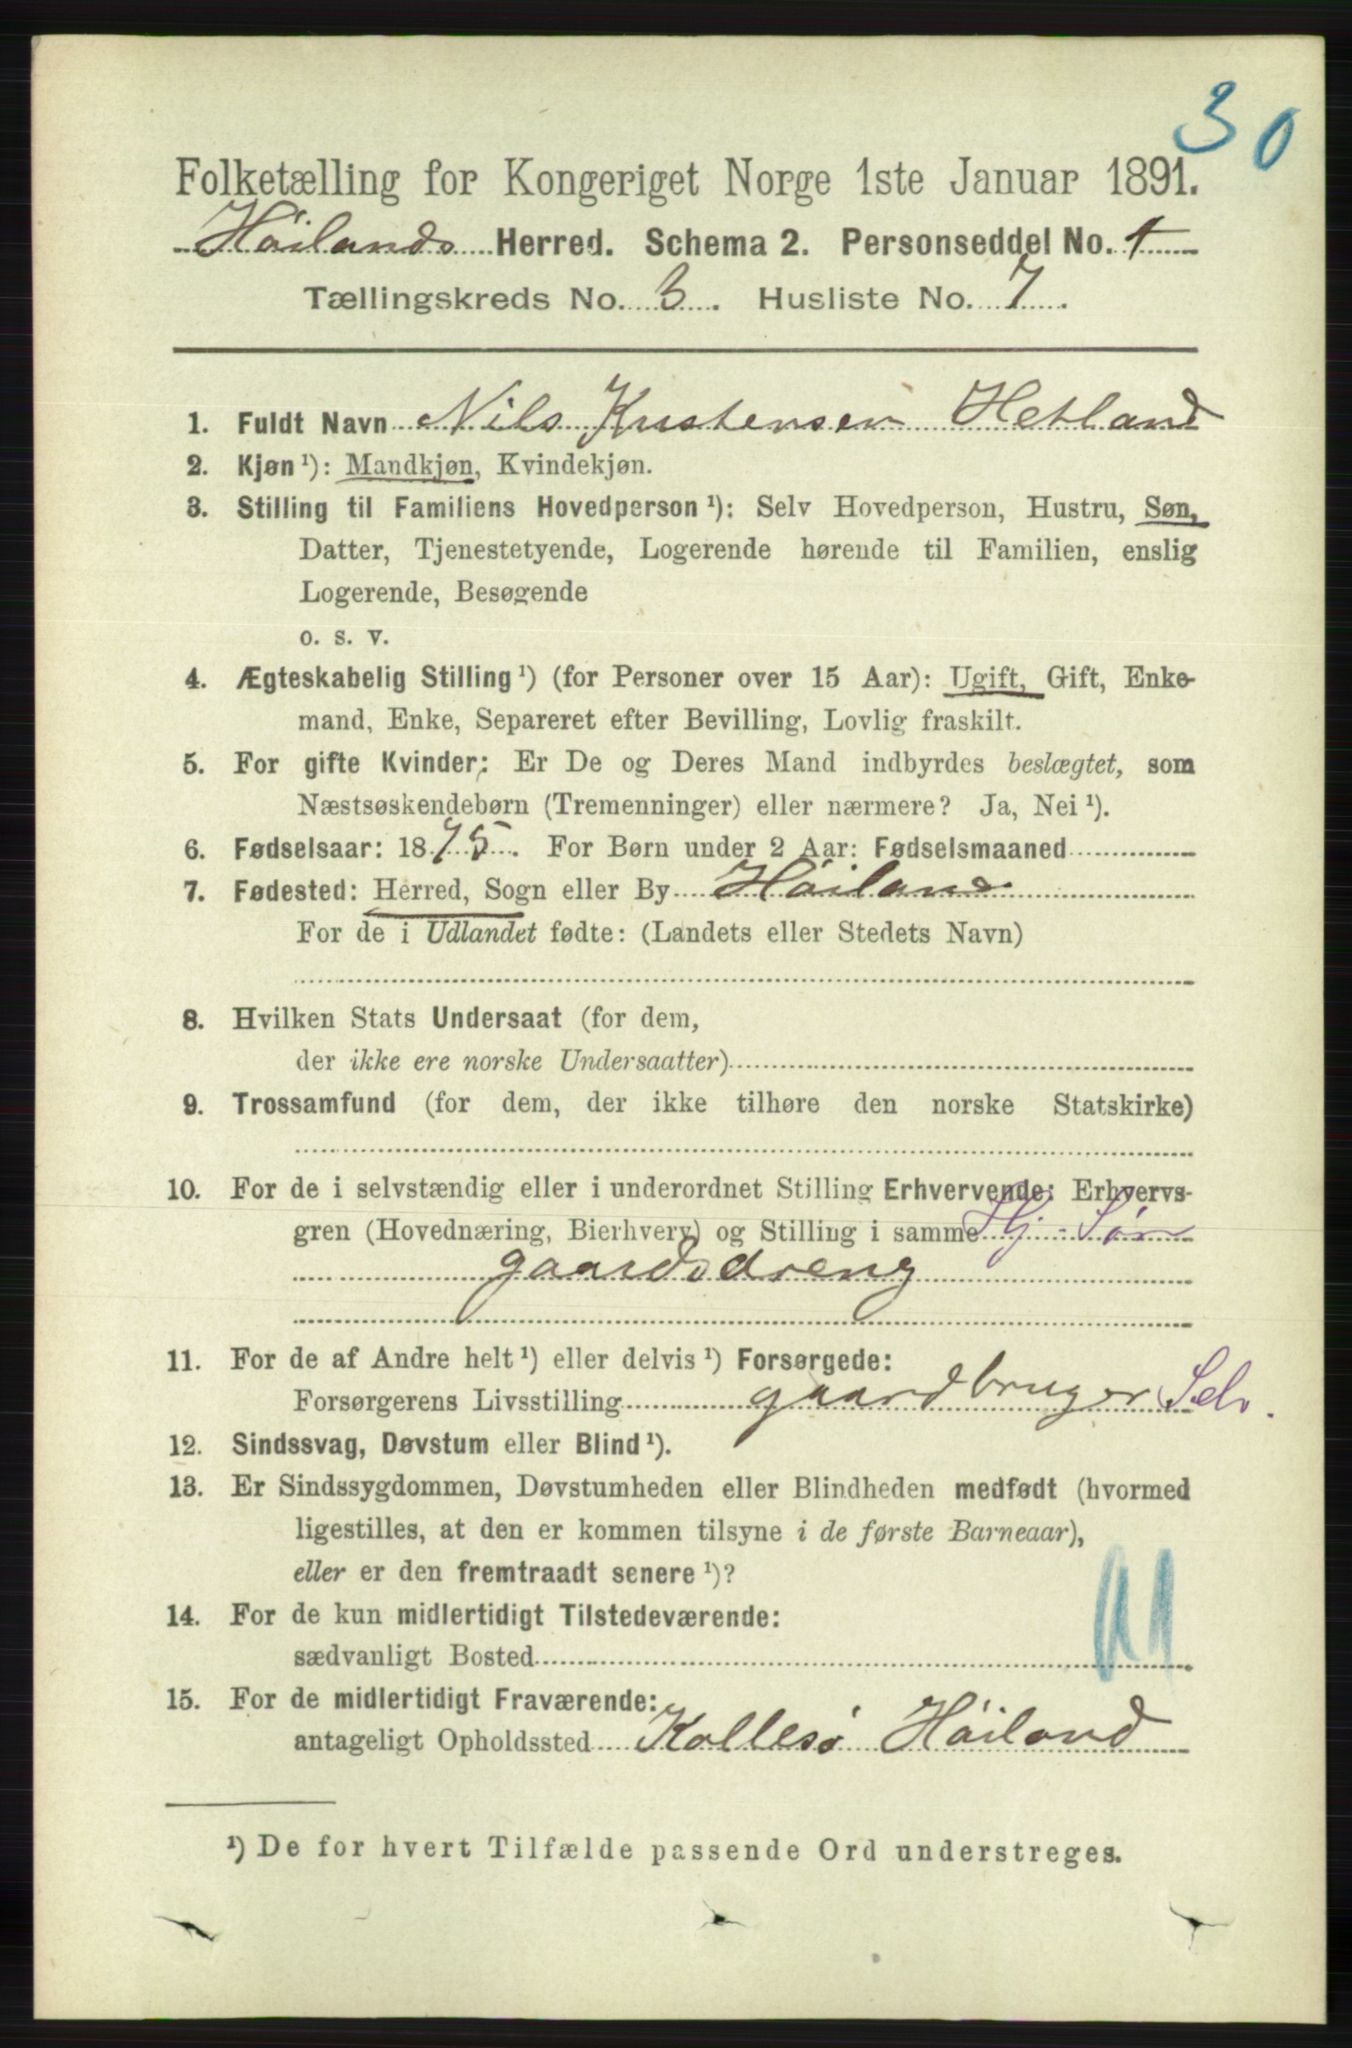 30
Folketælling for Kongeriget Norge 1ste Januar 1891.
Höilands Herred. Schema 2. Personseddel No. 1
Tællingskreds No. 3. Husliste No. 7.
1. Fuldt Navn Nils Kristensen Hetland
2. Kjøn¹): Mandkjøn, Kvindekjøn.
3. Stilling til Familiens Hovedperson¹): Selv Hovedperson, Hustru, Søn,
Datter, Tjenestetyende, Logerende hørende til Familien, enslig
Logerende, Besøgende
o. s. v.
4. Ægteskabelig Stilling¹) (for Personer over 15 Aar): Ugift, Gift, Enke-
mand, Enke, Separeret efter Bevilling, Lovlig fraskilt.
5. For gifte Kvinder: Er De og Deres Mand indbyrdes beslægtet, som
Næstsøskendebørn (Tremenninger) eller nærmere? Ja, Nei¹).
6. Fødselsaar: 1875. For Børn under 2 Aar: Fødselsmaaned
7. Fødested: Herred, Sogn eller By Höiland
For de i Udlandet fødte: (Landets eller Stedets Navn)
8. Hvilken Stats Undersaat (for dem,
der ikke ere norske Undersaatter)
9. Trossamfund (for dem, der ikke tilhøre den norske Statskirke)
10. For de i selvstændig eller i underordnet Stilling Erhvervende: Erhvervs-
gren (Hovednæring, Bierhverv) og Stilling i samme Hj. Søn
gaardsdreng
11. For de af Andre helt¹) eller delvis¹) Forsørgede:
Forsørgerens Livsstilling gaardbruger Selv.
12. Sindssvag, Døvstum eller Blind¹).
13. Er Sindssygdommen, Døvstumheden eller Blindheden medfødt (hvormed
ligestilles, at den er kommen tilsyne i de første Barneaar),
eller er den fremtraadt senere¹)?
14. For de kun midlertidigt Tilstedeværende:
sædvanligt Bosted
15. For de midlertidigt Fraværende:
antageligt Opholdssted Kollesö Höiland
¹) De for hvert Tilfælde passende Ord understreges.